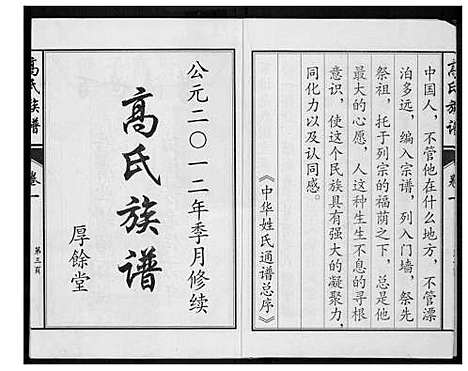 高氏族谱
卷一
中国人，不管他在什么地方，不管漂
泊多远，编入宗谱，列入门墙，祭先
祭祖，托于列宗的福荫之下，总是他
最大的心愿，人这种生生不息的寻根
意识，使这个民族具有强大的凝聚力，
同化力以及认同感。
《中华姓氏通谱总序》
公元二〇一二年季月修续
高氏族谱
厚餘堂
高氏族谱
卷一
第三页